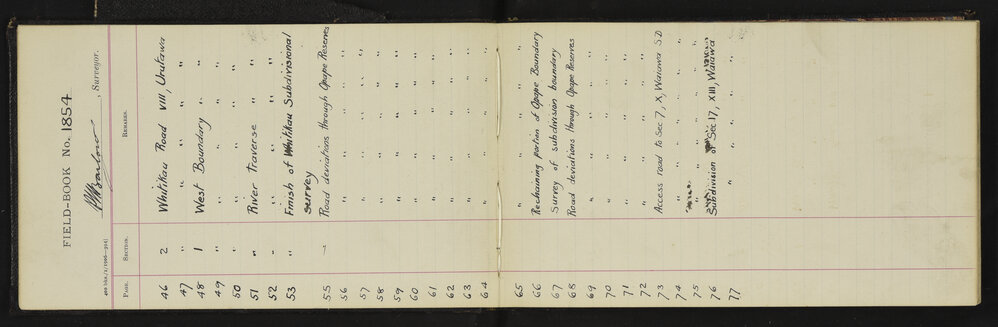 FIELD-BOOK No. 1854
, Surveyor.
PAGE. SECTION. REMARKS.
46 2 Whitikau Road VIII, Urutawa
47 " " " " "
48 1 West Boundary " "
49 " " " " "
50 " " " " "
51 " River traverse " "
52 " " " " "
53 " Finish of Whitikau Subdivisional
survey
55 — Road deviations through Opape Reserves
56 " " " " "
57 " " " " "
58 " " " " "
59 " " " " "
60 " " " " "
61 " " " " "
62 " " " " "
63 " " " " "
64 " " " " "
65 " " " " "
66 Rechaining portion of Opape Boundary
67 Survey of subdivision boundary
68 Road deviations through Opape Reserves
69 " " " " "
70 " " " " "
71 " " " " "
72 " " " " "
73 Access road to Sec 7, X, Waiawa SD
74 " " " " "
75 " " "
76 Subdivision of Sec 17, XIII, Waiawa
77 " " " " "